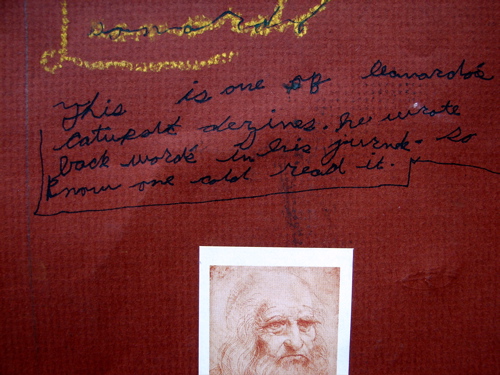 Leonardo
This is one of leonardo's
catupolt dezines. he wrote
back words in his jurnk. so
know one cold read it.